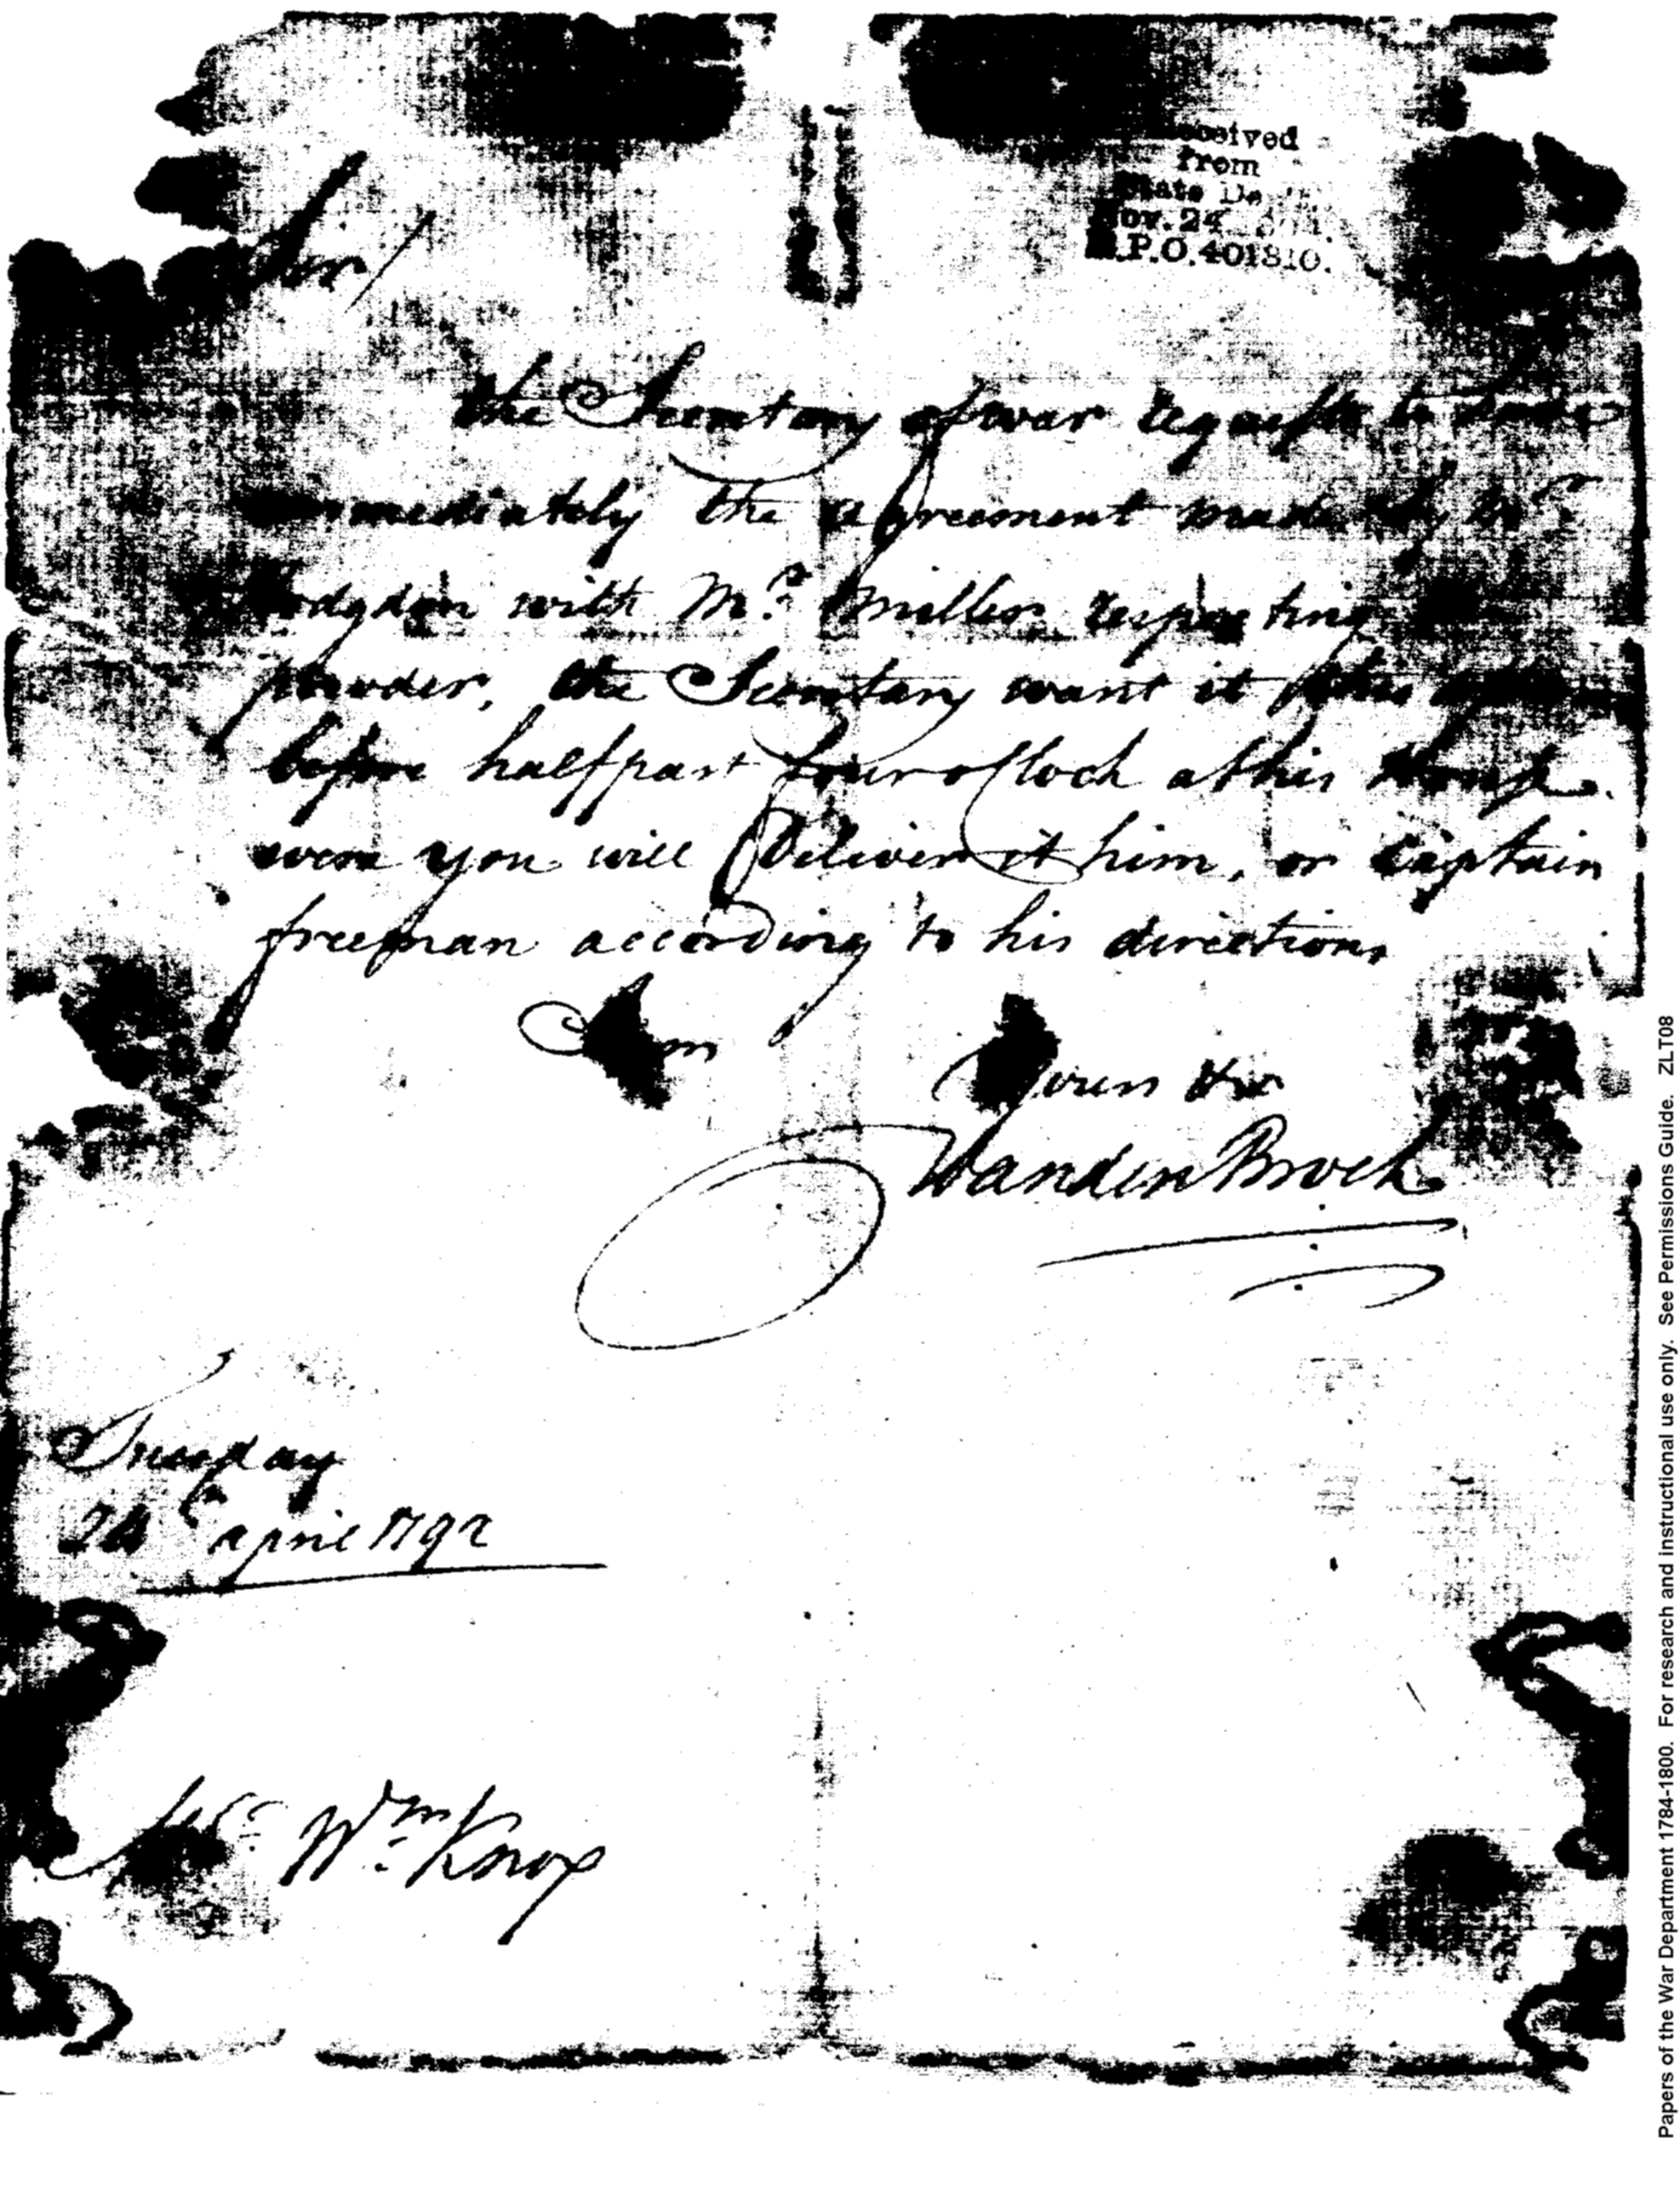 Received
from
State De
Nov. 24
M.P.O. 401810.
Sir/
the Secretary of war requests to have
immediately the agreement made by Mr
Hodgdon with Mr. Miller respecting
powder, the Secretary want it this
before halfpast four oClock at his House.
were you will Deliver it him, or Captain
freeman according to his directions
I am
Yours &c
VandenBroek
Tuesday
24 april 1792
Mr. Wm. Knox
Papers of the War Department 1784-1800. For research and instructional use only. See Permissions Guide. ZLT08